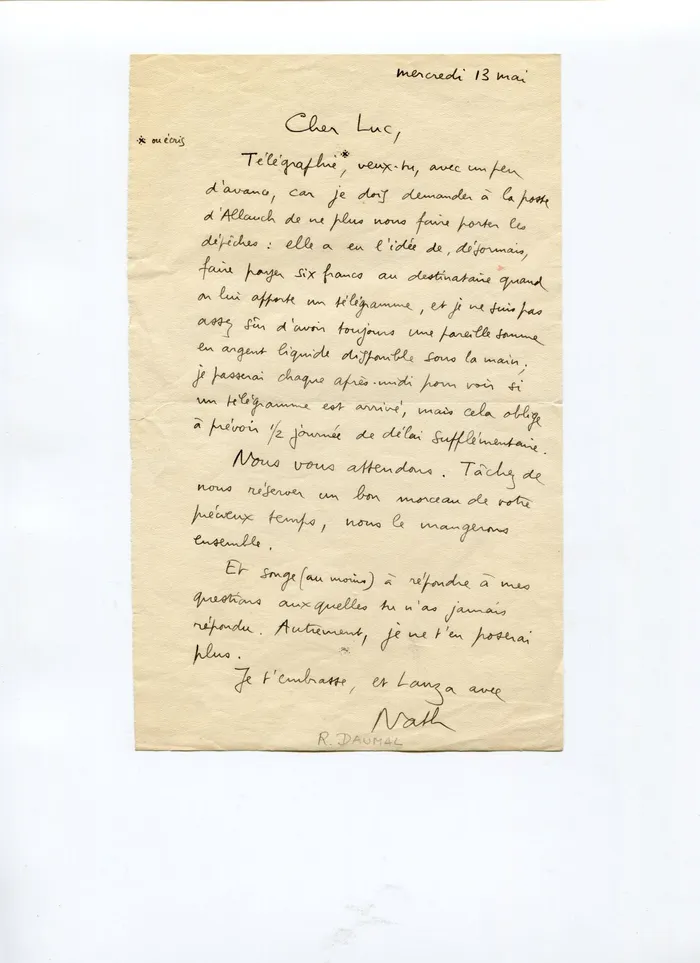 mercredi 13 mai
Cher Luc,
* ou écris
Télégraphie*, veux-tu, avec un peu
d'avance, car je dois demander à la poste
d'Allauch de ne plus nous faire porter les
dépêches : elle a eu l'idée de, désormais,
faire payer six francs au destinataire quand
on lui apporte un télégramme, et je ne suis pas
assez sûr d'avoir toujours une pareille somme
en argent liquide disponible sous la main.
je passerai chaque après-midi pour voir si
un télégramme est arrivé, mais cela oblige
à prévoir 1/2 journée de délai supplémentaire.
Nous vous attendons. Tâchez de
nous réserver un bon morceau de votre
précieux temps, nous le mangerons
ensemble.
Et songe (au moins) à répondre à mes
questions auxquelles tu n'as jamais
répondu. Autrement, je ne t'en poserai
plus.
Je t'embrasse, et Lanza avec
Nath
R. DAUMAL